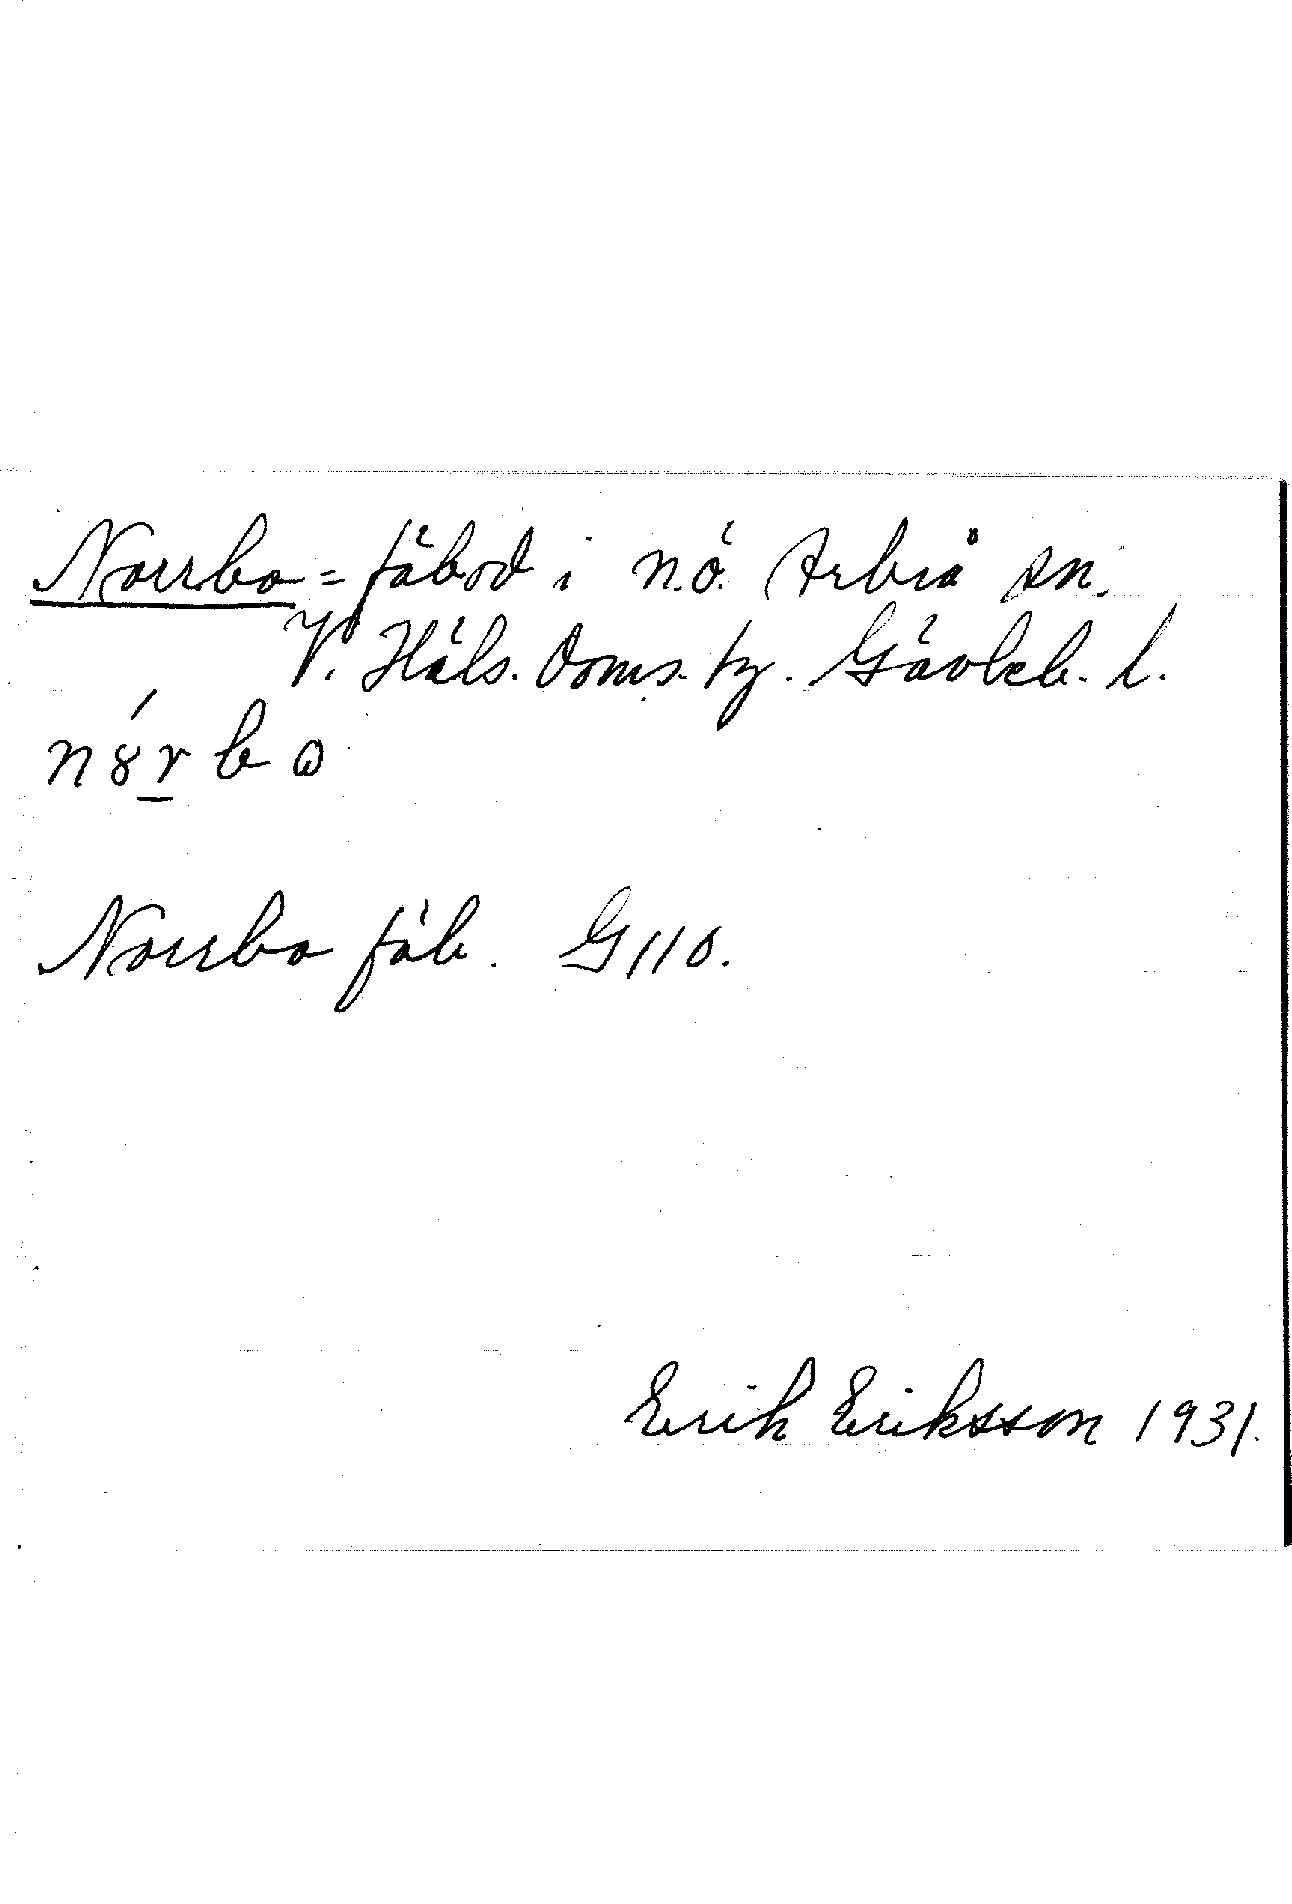 Norrbo = fäbod i n.ö. Arbrå sn.
V. Häls. Doms. hg. Gävleb. l.
n8́rbɷ
Norrbo fäb. G 110.
Erik Eriksson 1931.